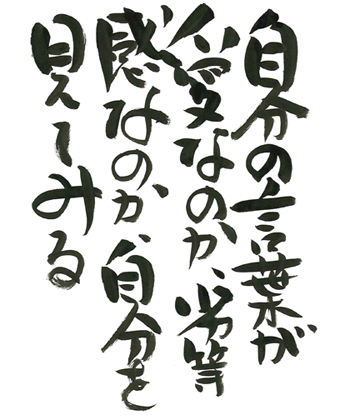 自分の言葉が
愛なのか、劣等
感なのか、自分を
見てみる